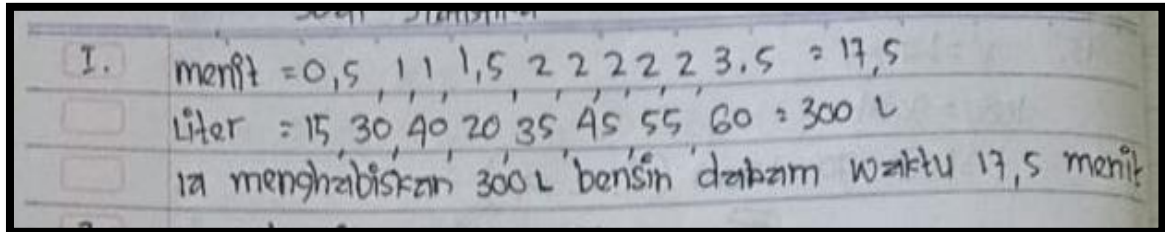 Soal Statistika
I. menit = 0,5, 1, 1, 1,5, 2, 2, 2, 2, 2, 3.5 = 17,5
Liter = 15, 30, 40, 20, 35, 45, 55, 60 = 300 L
ia menghabiskan 300 L bensin dabam waktu 17,5 menit